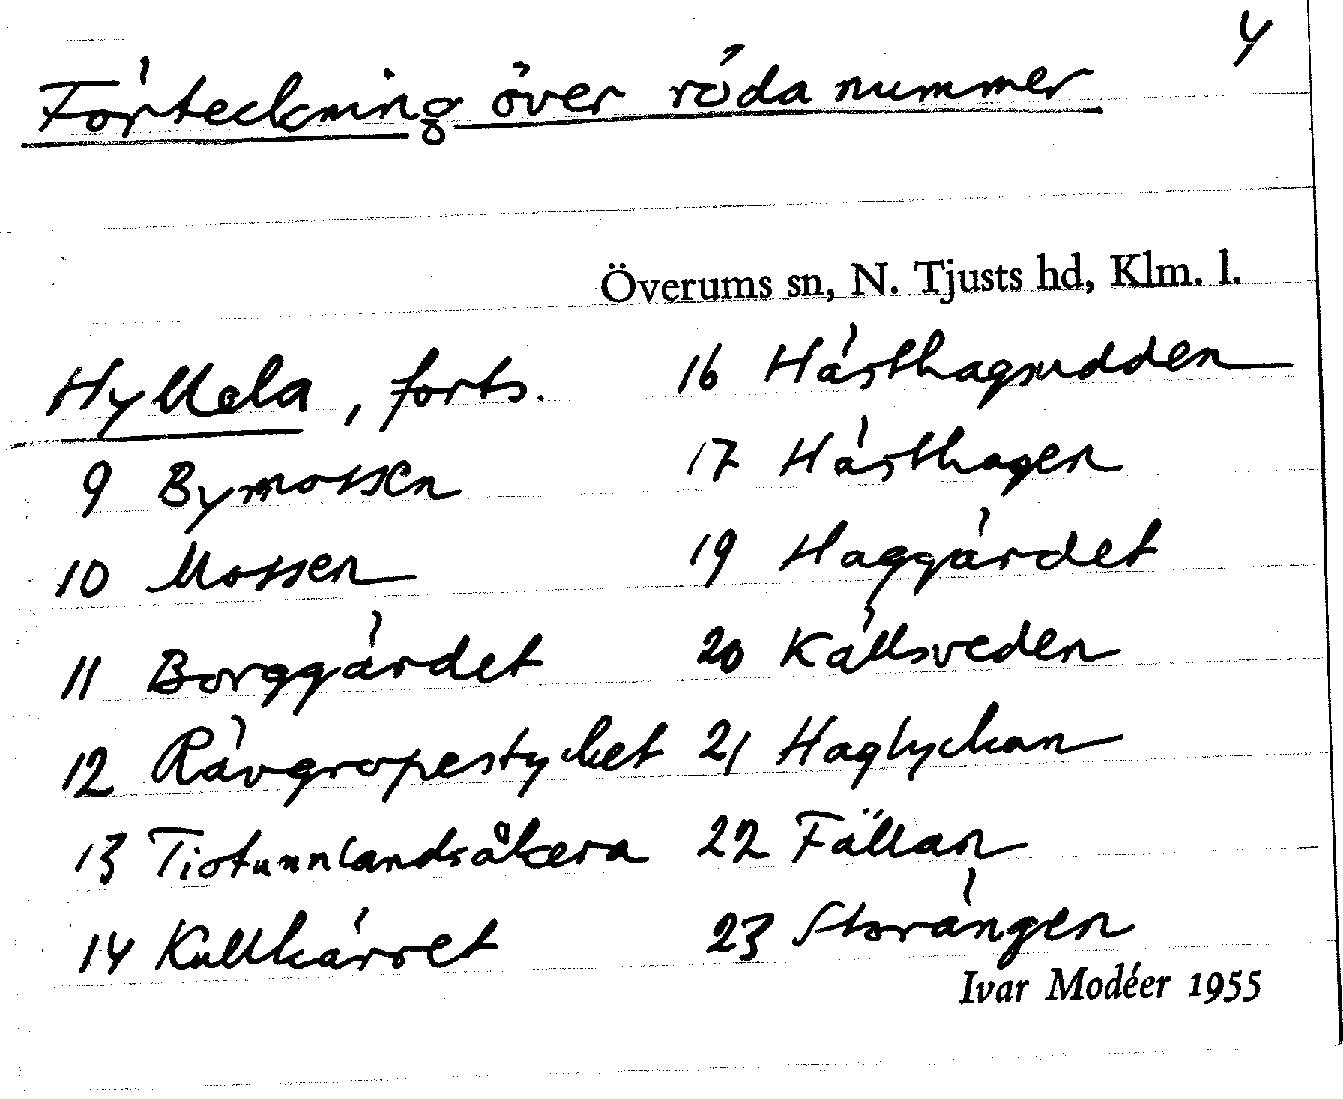 4
Förteckning över röda nummer
Överums sn, N. Tjusts hd, Klm. l.
Hyllela, forts.
9 Bymossen
10 Mossen
11 Borggärdet
12 Rävgropestycket
13 Tiotunnlandsåkern
14 Kullkärret
16 Hästhagsudden
17 Hästhagen
19 Haggärdet
20 Källsveden
21 Haglyckan
22 Fällan
23 Storängen
Ivar Modéer 1955